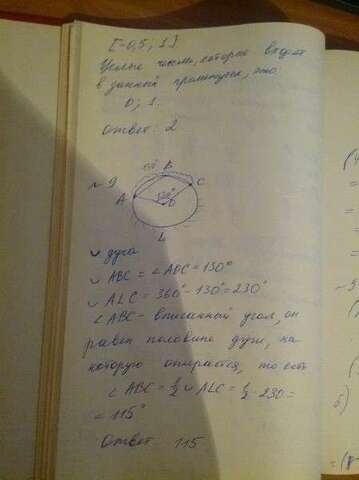 [-0,5; 1]
Целые числа, которые входят
в данный промежуток, это
0; 1.
Ответ: 2
№ 9
B
A
C
130°
O
L
◡ дуга
◡ ABC = ∠ AOC = 130°
◡ ALC = 360° - 130° = 230°
∠ ABC - вписанный угол, он
равен половине дуги, на
которую опирается, то есть
∠ ABC = 1/2 ◡ ALC = 1/2 · 230 =
= 115°
Ответ: 115